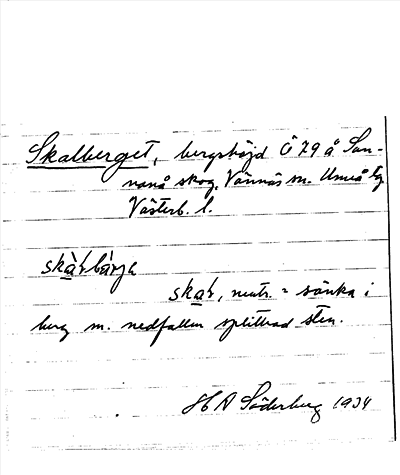 Skalberget, bergshöjd Ö 79 å San-
nanå skog, Vännäs sn. Umeå tg
Västerb. l.
skàɫbárja
skaɫ, neutr. = sänka i
berg m. nedfallen splittrad sten.
H A Söderberg 1934